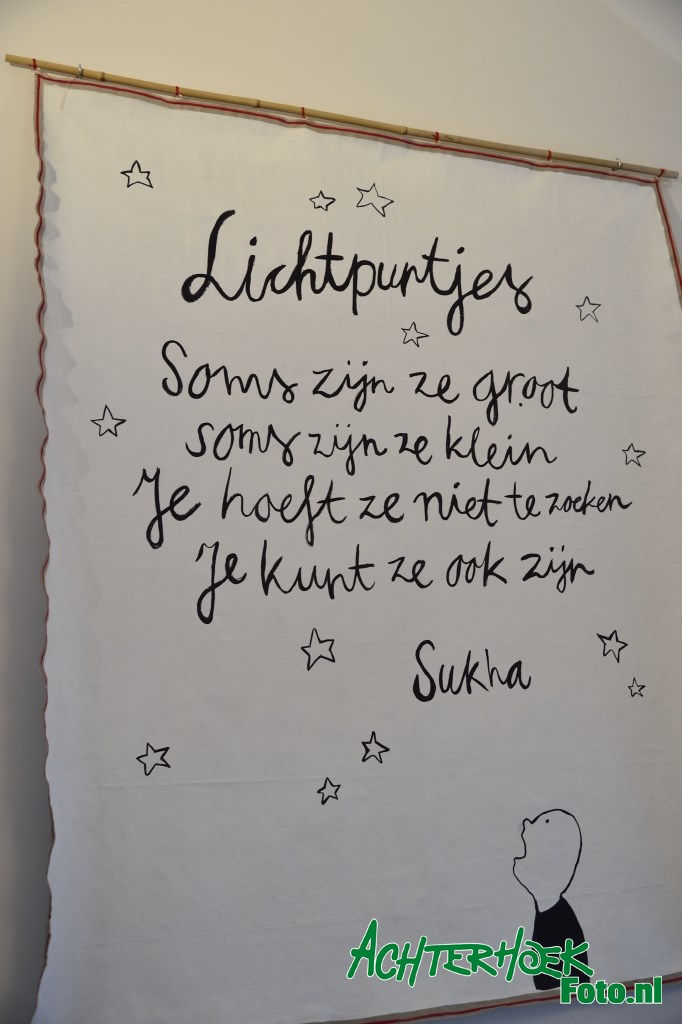 Lichtpuntjes
Soms zijn ze groot
soms zijn ze klein
Je hoeft ze niet te zoeken
Je kunt ze ook zijn
Sukha
ACHTERHOEK
Foto.nl